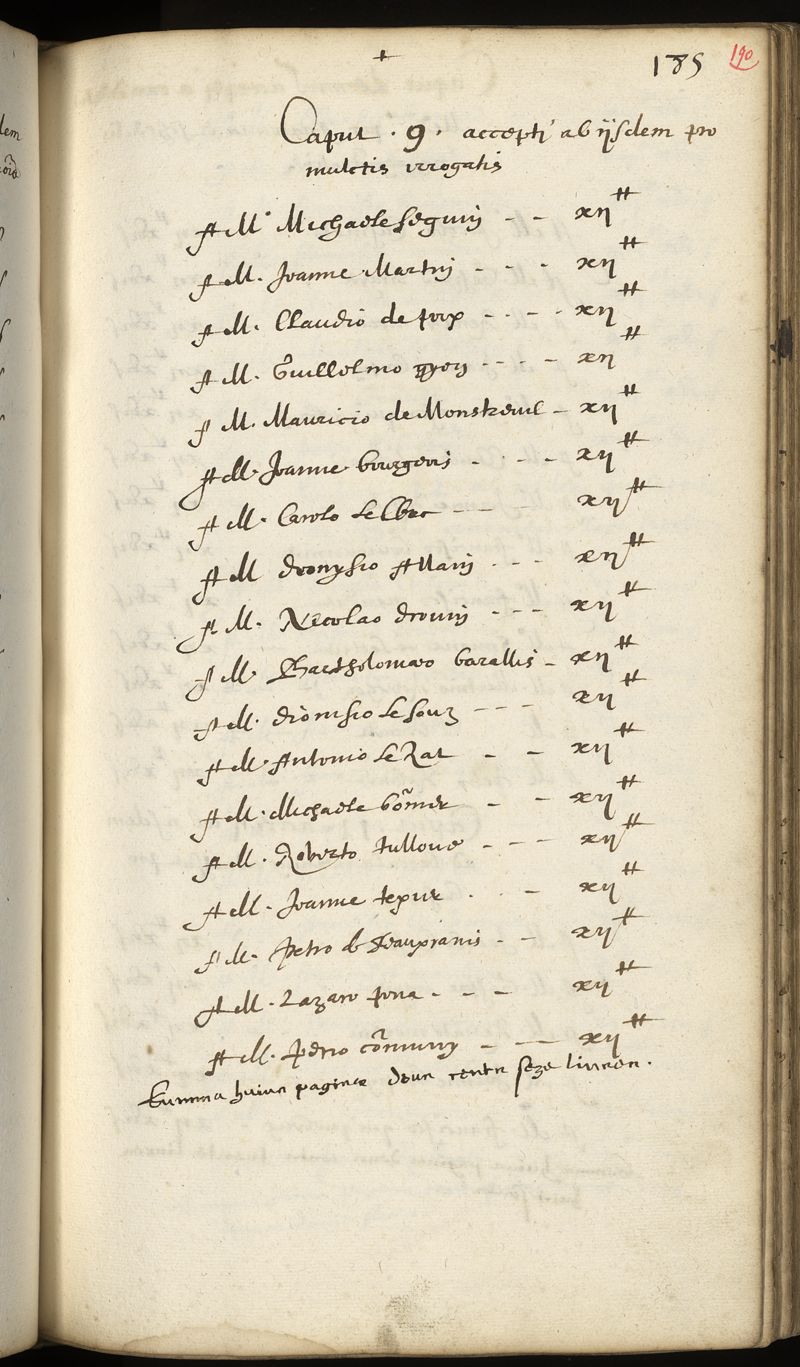 +
185 190
Caput . 9 . accepti ab ijsdem pro
mulctis irrogatis
A M. Michaele Seguin - - xij ₶
A M. Joanne Martin - - - xij ₶
A M. Claudio de - - - - xij ₶
A M. Guillelmo - - - - xij ₶
A M. Mauricio de Monstreuil - xij ₶
A M. Joanne bourgeois - - - xij ₶
A M. Carolo Le Clerc - - - xij ₶
A M dionysio Allain - - - xij ₶
A M. Nicolao drouin - - - xij ₶
A M. Bartholomaeo barallis - xij ₶
A M. dionisio Le Souz - - - xij ₶
A M. Antonio Le Rat - - xij ₶
A M. Michaele - - xij ₶
A M. Roberto tulloue - - - xij ₶
A M. Joanne tepur . . - xij ₶
A M. Petro de - - xij ₶
A M. Lazaro pena - - - xij ₶
A M. Petro cõmuny - - xij ₶
Summa huius paginae deux centz seze livres .